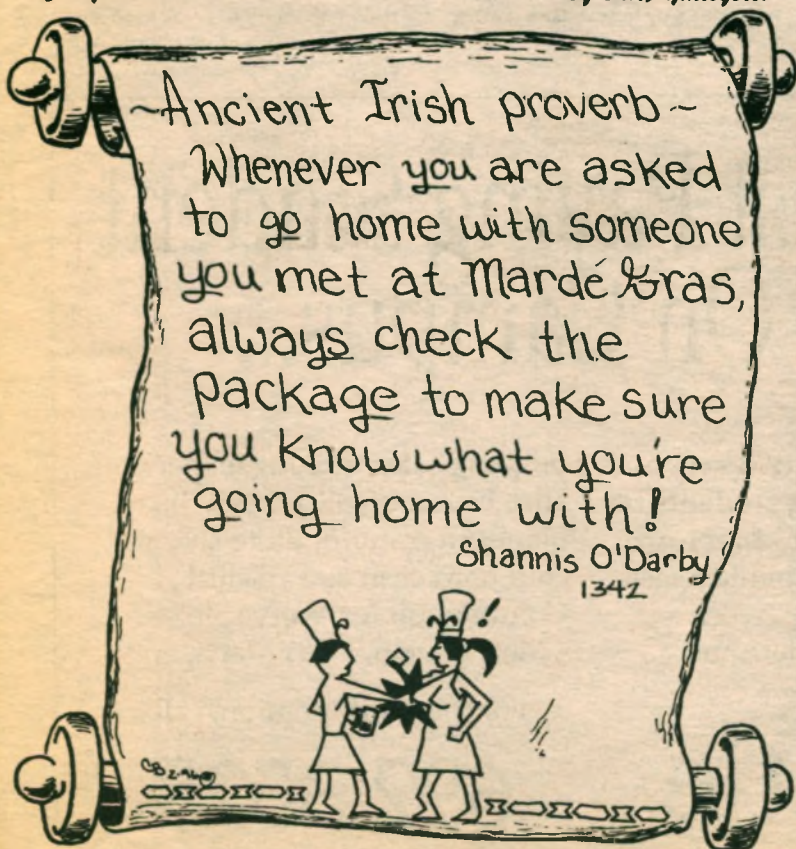 ~Ancient Irish proverb~
Whenever you are asked
to go home with someone
you met at Mardé Gras,
always check the
package to make sure
you know what you're
going home with!
Shannis O'Darby
1342
!
CB 2-96